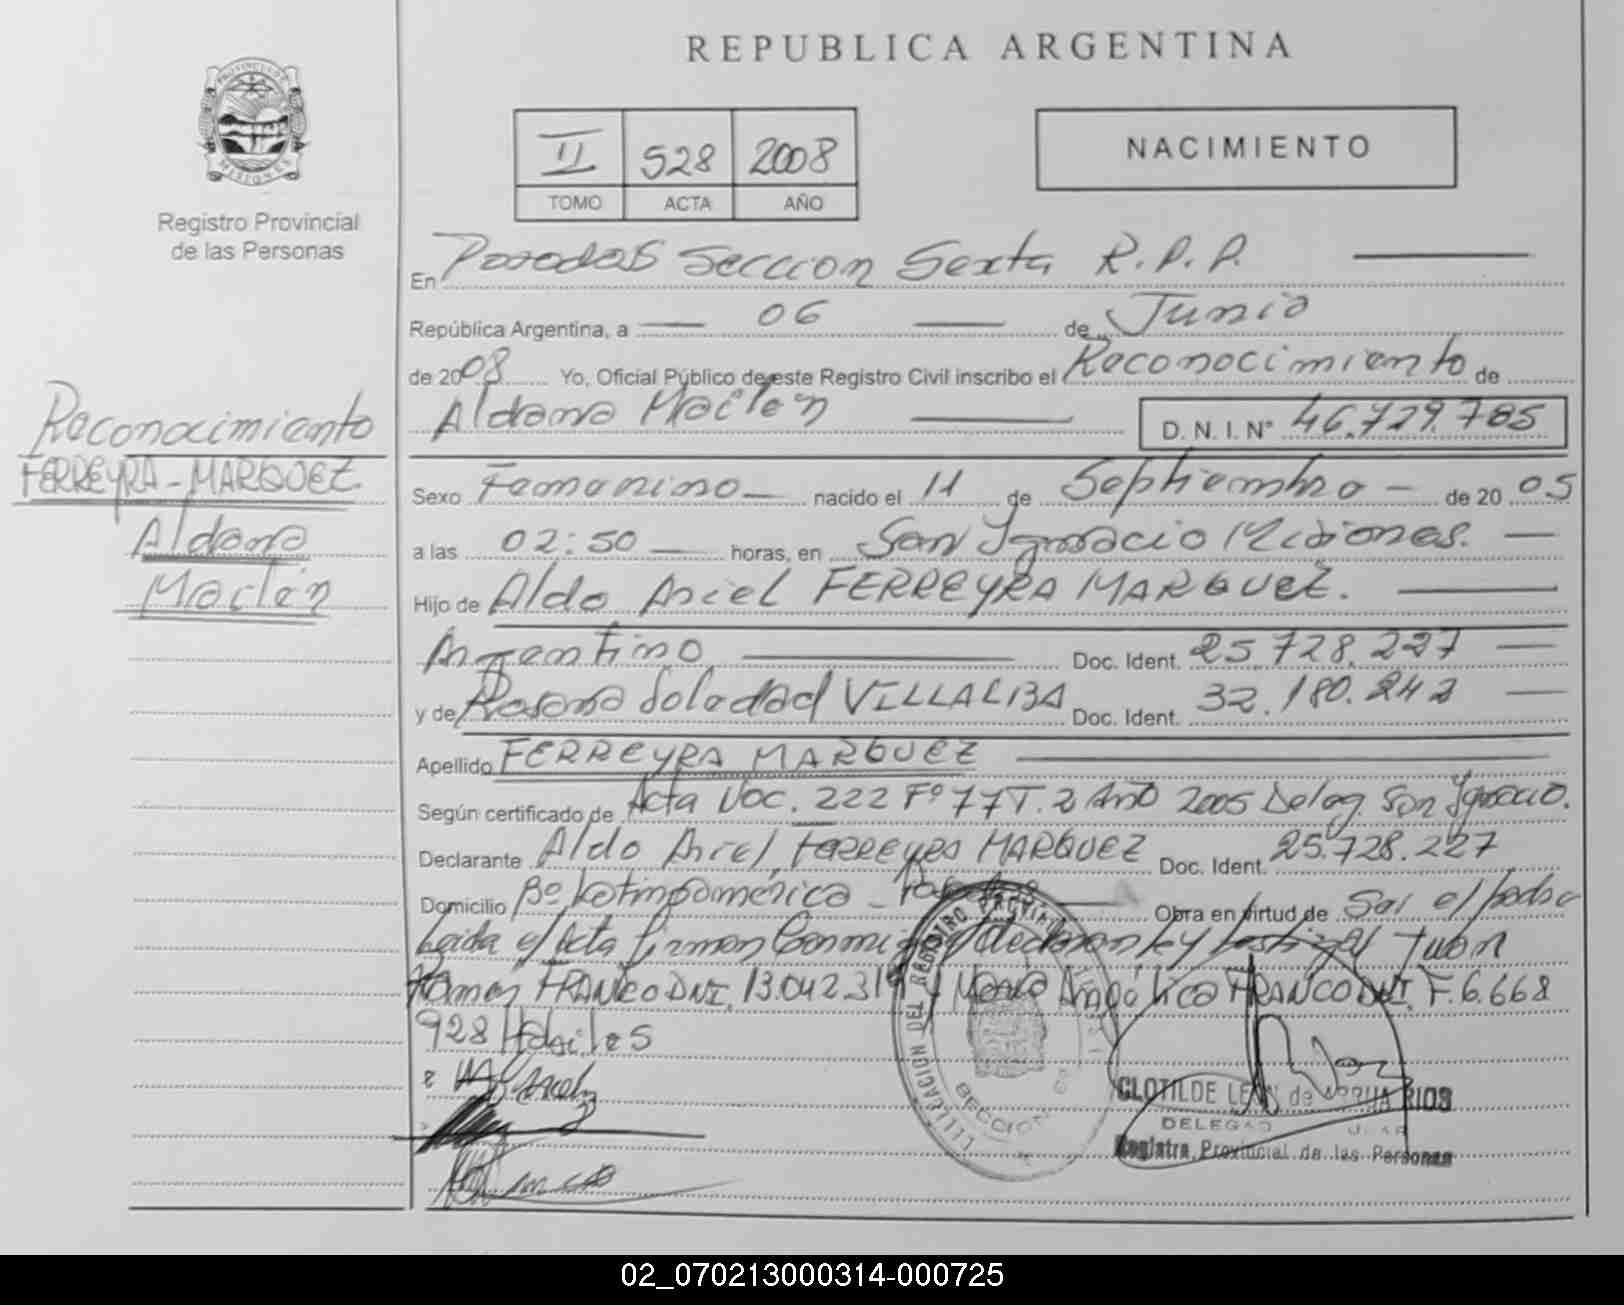 REPUBLICA ARGENTINA
PROVINCIA DE
MISIONES
Registro Provincial
de las Personas
II 528 2008
TOMO ACTA AÑO
NACIMIENTO
En Posadas Seccion Sexta R.P.P.
República Argentina, a 06 de Junio
de 2008 Yo, Oficial Público de este Registro Civil inscribo el Reconocimiento de
Aldana Mailen D. N. I. N° 46.729.785
Reconocimiento
FERREYRA-MARQUEZ
Aldana
Mailen
Sexo Femenino nacido el 11 de Septiembre de 2005
a las 02:50 horas, en San Ignacio Misiones.
Hijo de Aldo Ariel FERREYRA MARQUEZ.
Argentino Doc. Ident. 25.728.227
y de Rosana Soledad VILLALBA Doc. Ident. 32.180.242
Apellido FERREYRA MARQUEZ
Según certificado de Acta Nac. 222 Fº 77 T. 2 Año 2005 Deleg. San Ignacio.
Declarante Aldo Ariel FERREYRA MARQUEZ Doc. Ident. 25.728.227
Domicilio Bº Latinoamérica - Posadas Obra en virtud de Ser el padre
Leida el Acta firman Conmigo el declarante y testigos Juan
Ramon FRANCO DNI. 13.042.319 y Maria Angélica FRANCO DNI. F.6.668
928 Hábiles
SECCION
CLOTILDE LEON de RIOS
DELEGAD
Registro Provincial de las Personas
02_070213000314-000725